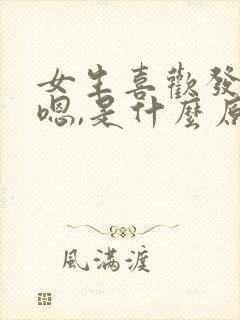 女生喜歡發
嗯,是什麼原
風滿渡